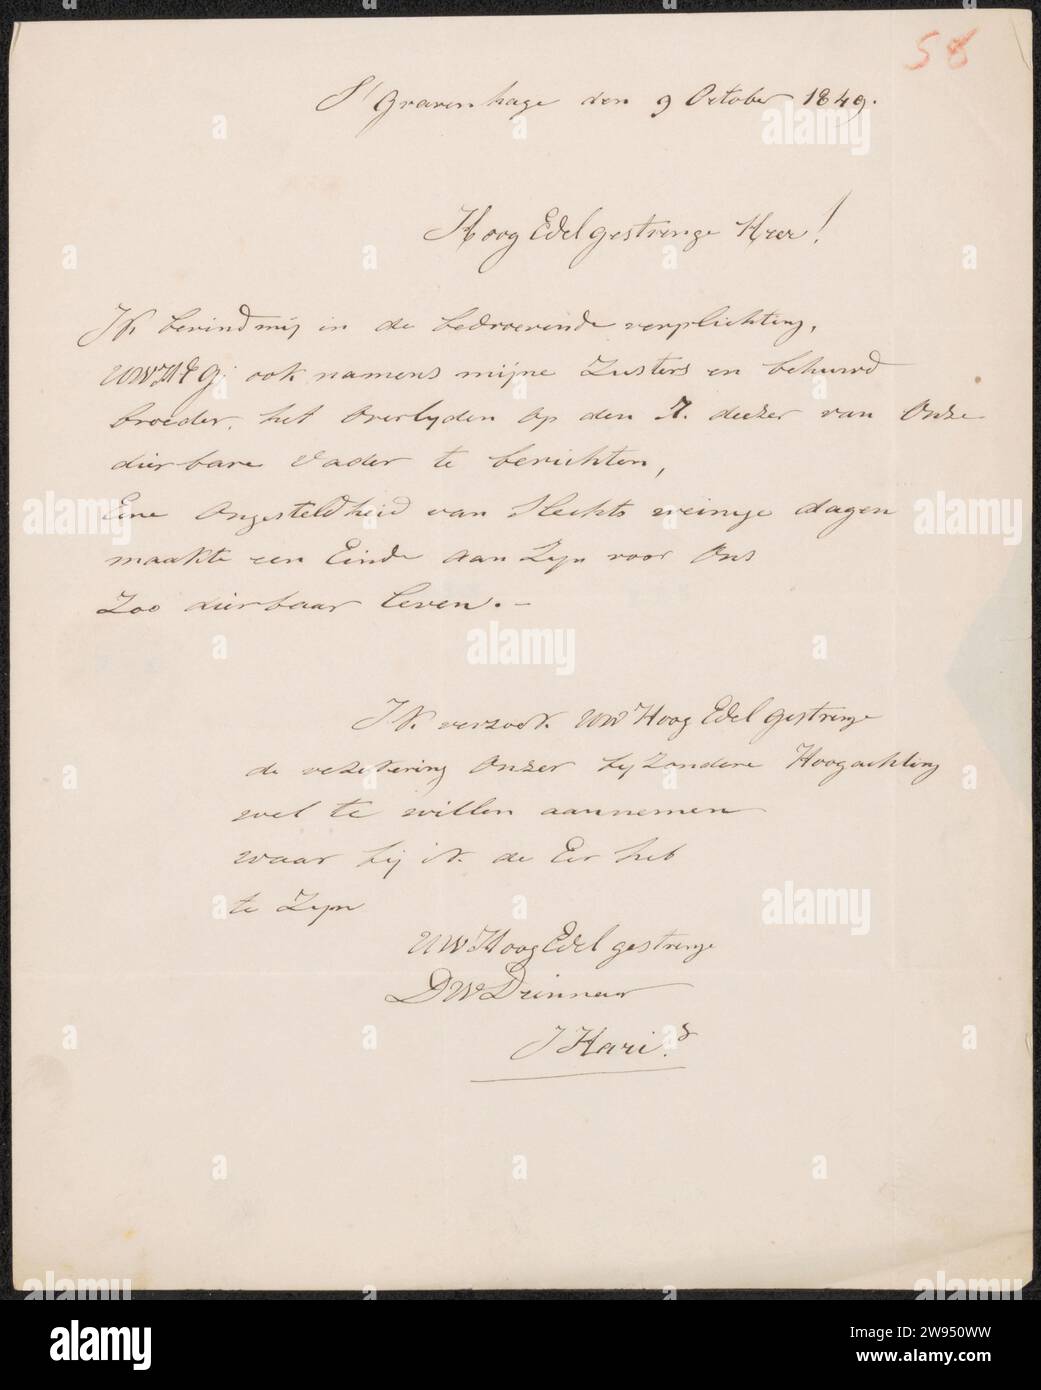 58
S' Gravenhage den 9 October 1849.
Hoog Edel gestrenge Heer!
Ik bevind mij in de bedroevende verplichting,
UWHEG; ook namens mijne Zusters en behuwd
broeder, het Overlyden op den 7. deezer van Onze
dierbare Vader te berichten,
Eene Ongesteldheid van Slechts weinige dagen
maakte een Einde aan Zyn voor Ons
Zoo dierbaar leven. –
Ik verzoek UW Hoog Edel gestrenge
de verzekering Onzer byzondere Hoogachting
wel te willen aannemen
waar bij ik de Eer heb
te Zyn
UW Hoog Edel gestrenge
DW Dienaar
J Hari
alamy
Image ID: 2W950WW
www.alamy.com